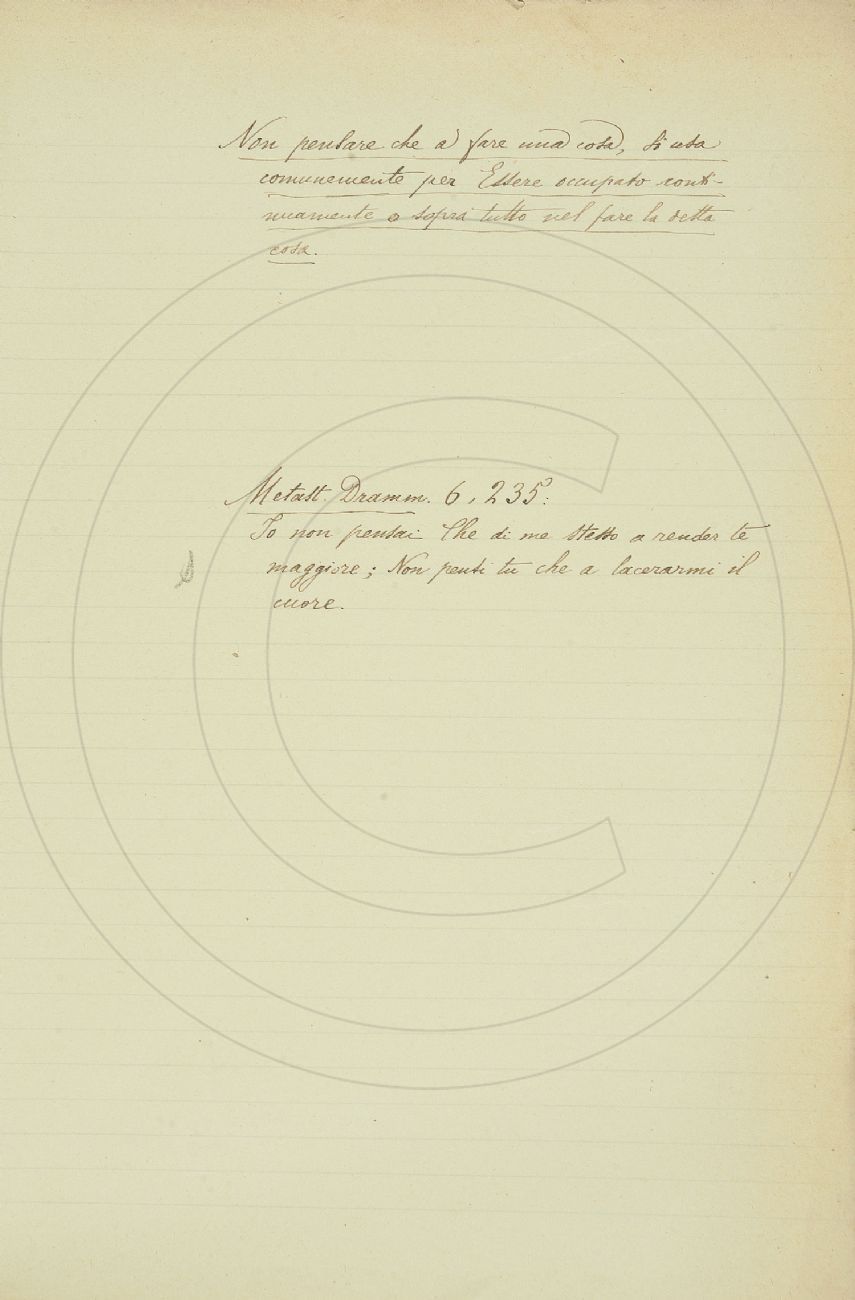 Non pensare che a fare una cosa, si usa
comunemente per Essere occupato conti-
nuamente o sopra tutto nel fare la detta
cosa.
Metast. Dramm. 6, 235:
Io non pensai Che di me stesso a render te
maggiore; Non pensi tu che a lacerarmi il
cuore.